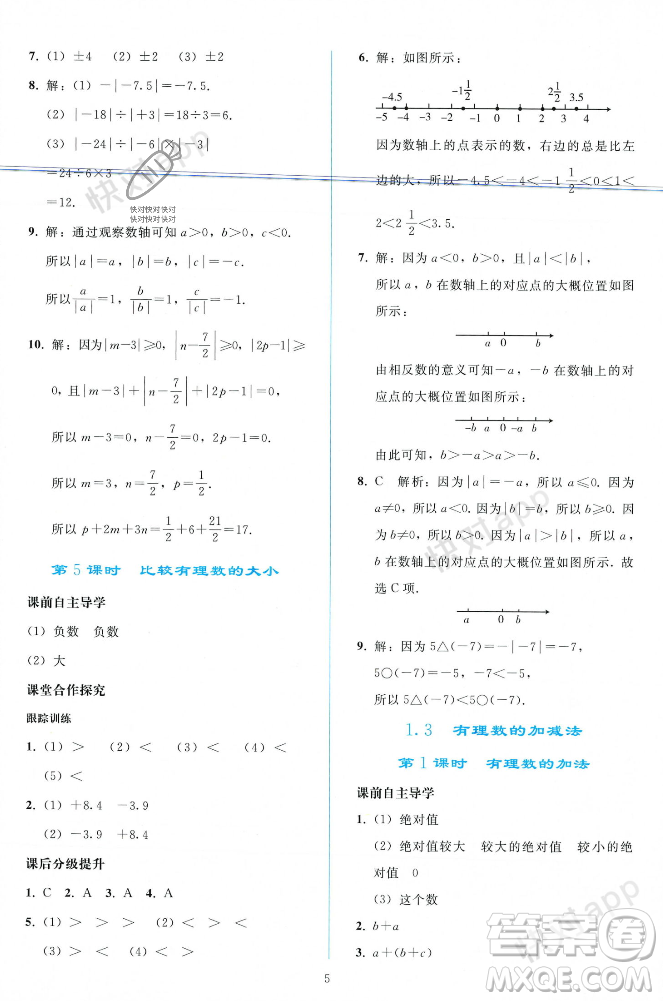 7. (1) ±4 (2) ±2 (3) ±2
8. 解:(1) -|-7.5|=-7.5.
(2) |-18|÷|+3|=18÷3=6.
(3) |-24|÷|-6|×|-3|
=24÷6×3
=12.
9. 解:通过观察数轴可知a>0, b>0, c<0.
所以|a|=a, |b|=b, |c|=-c.
所以a/|a|=1, b/|b|=1, c/|c|=-1.
10. 解:因为|m-3|≥0, |n-7/2|≥0, |2p-1|≥
0,且|m-3|+|n-7/2|+|2p-1|=0,
所以m-3=0, n-7/2=0, 2p-1=0.
所以m=3, n=7/2, p=1/2.
所以p+2m+3n=1/2+6+21/2=17.
第5课时 比较有理数的大小
课前自主导学
(1) 负数 负数
(2) 大
课堂合作探究
跟踪训练
1. (1) > (2) < (3) < (4) >
(5) <
2. (1) +8.4 -3.9
(2) -3.9 +8.4
课后分级提升
1. C 2. A 3. A 4. A
5. (1) > > > (2) < > <
(3) > < (4) > <
6. 解:如图所示:
-4.5 -1 1/2 2 1/2 3.5
-5 -4 -3 -2 -1 0 1 2 3 4 5
因为数轴上的点表示的数,右边的总是比左
边的大,所以-4.5<-4<-1 1/2<0<1<
2<2 1/2<3.5.
7. 解:因为a<0, b>0,且|a|<|b|,
所以a, b在数轴上的对应点的大概位置如图
所示:
a 0 b
由相反数的意义可知-a, -b在数轴上的对
应点的大概位置如图所示:
-b a 0 -a b
由此可知, b>-a>a>-b.
8. C 解析:因为|a|=-a,所以a≤0.因为
a≠0,所以a<0.因为|b|=b,所以b≥0.因
为b≠0,所以b>0.因为|a|>|b|,所以a,
b在数轴上的大概位置如图所示.所以a<b.故
选C项.
a 0 b
9. 解:因为5△(-7)=-|-7|=-7,
5○(-7)=-5, -7<-5,
所以5△(-7)<5○(-7).
1.3 有理数的加减法
第1课时 有理数的加法
课前自主导学
1. (1) 绝对值
(2) 绝对值较大 较大的绝对值 较小的绝
对值 0
(3) 这个数
2. b+a
3. a+(b+c)
5
快对app
快对快对快对
快对快对快对
快对app
快对app
答案圈
MXQE.COM